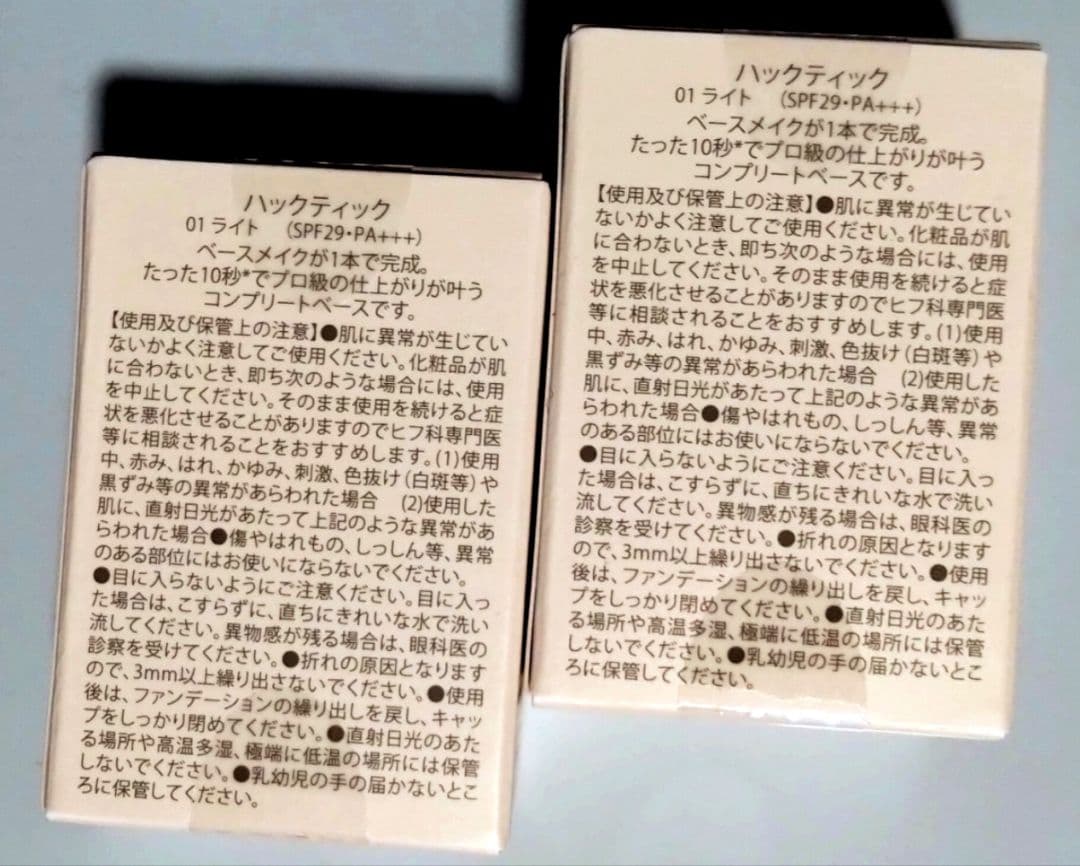 ハックティック
01 ライト　（SPF29・PA+++）
ベースメイクが1本で完成。
たった10秒*でプロ級の仕上がりが叶う
コンプリートベースです。
【使用及び保管上の注意】●肌に異常が生じてい
ないかよく注意してご使用ください。化粧品が肌
に合わないとき、即ち次のような場合には、使用
を中止してください。そのまま使用を続けると症
状を悪化させることがありますのでヒフ科専門医
等に相談されることをおすすめします。(1)使用
中、赤み、はれ、かゆみ、刺激、色抜け（白斑等）や
黒ずみ等の異常があらわれた場合　(2)使用した
肌に、直射日光があたって上記のような異常があ
らわれた場合●傷やはれもの、しっしん等、異常
のある部位にはお使いにならないでください。
●目に入らないようにご注意ください。目に入っ
た場合は、こすらずに、直ちにきれいな水で洗い
流してください。異物感が残る場合は、眼科医の
診察を受けてください。●折れの原因となります
ので、3mm以上繰り出さないでください。●使用
後は、ファンデーションの繰り出しを戻し、キャッ
プをしっかり閉めてください。●直射日光のあた
る場所や高温多湿、極端に低温の場所には保管
しないでください。●乳幼児の手の届かないとこ
ろに保管してください。
ハックティック
01 ライト　（SPF29・PA+++）
ベースメイクが1本で完成。
たった10秒*でプロ級の仕上がりが叶う
コンプリートベースです。
【使用及び保管上の注意】●肌に異常が生じてい
ないかよく注意してご使用ください。化粧品が肌
に合わないとき、即ち次のような場合には、使用
を中止してください。そのまま使用を続けると症
状を悪化させることがありますのでヒフ科専門医
等に相談されることをおすすめします。(1)使用
中、赤み、はれ、かゆみ、刺激、色抜け（白斑等）や
黒ずみ等の異常があらわれた場合　(2)使用した
肌に、直射日光があたって上記のような異常があ
らわれた場合●傷やはれもの、しっしん等、異常
のある部位にはお使いにならないでください。
●目に入らないようにご注意ください。目に入っ
た場合は、こすらずに、直ちにきれいな水で洗い
流してください。異物感が残る場合は、眼科医の
診察を受けてください。●折れの原因となります
ので、3mm以上繰り出さないでください。●使用
後は、ファンデーションの繰り出しを戻し、キャッ
プをしっかり閉めてください。●直射日光のあた
る場所や高温多湿、極端に低温の場所には保管
しないでください。●乳幼児の手の届かないとこ
ろに保管してください。